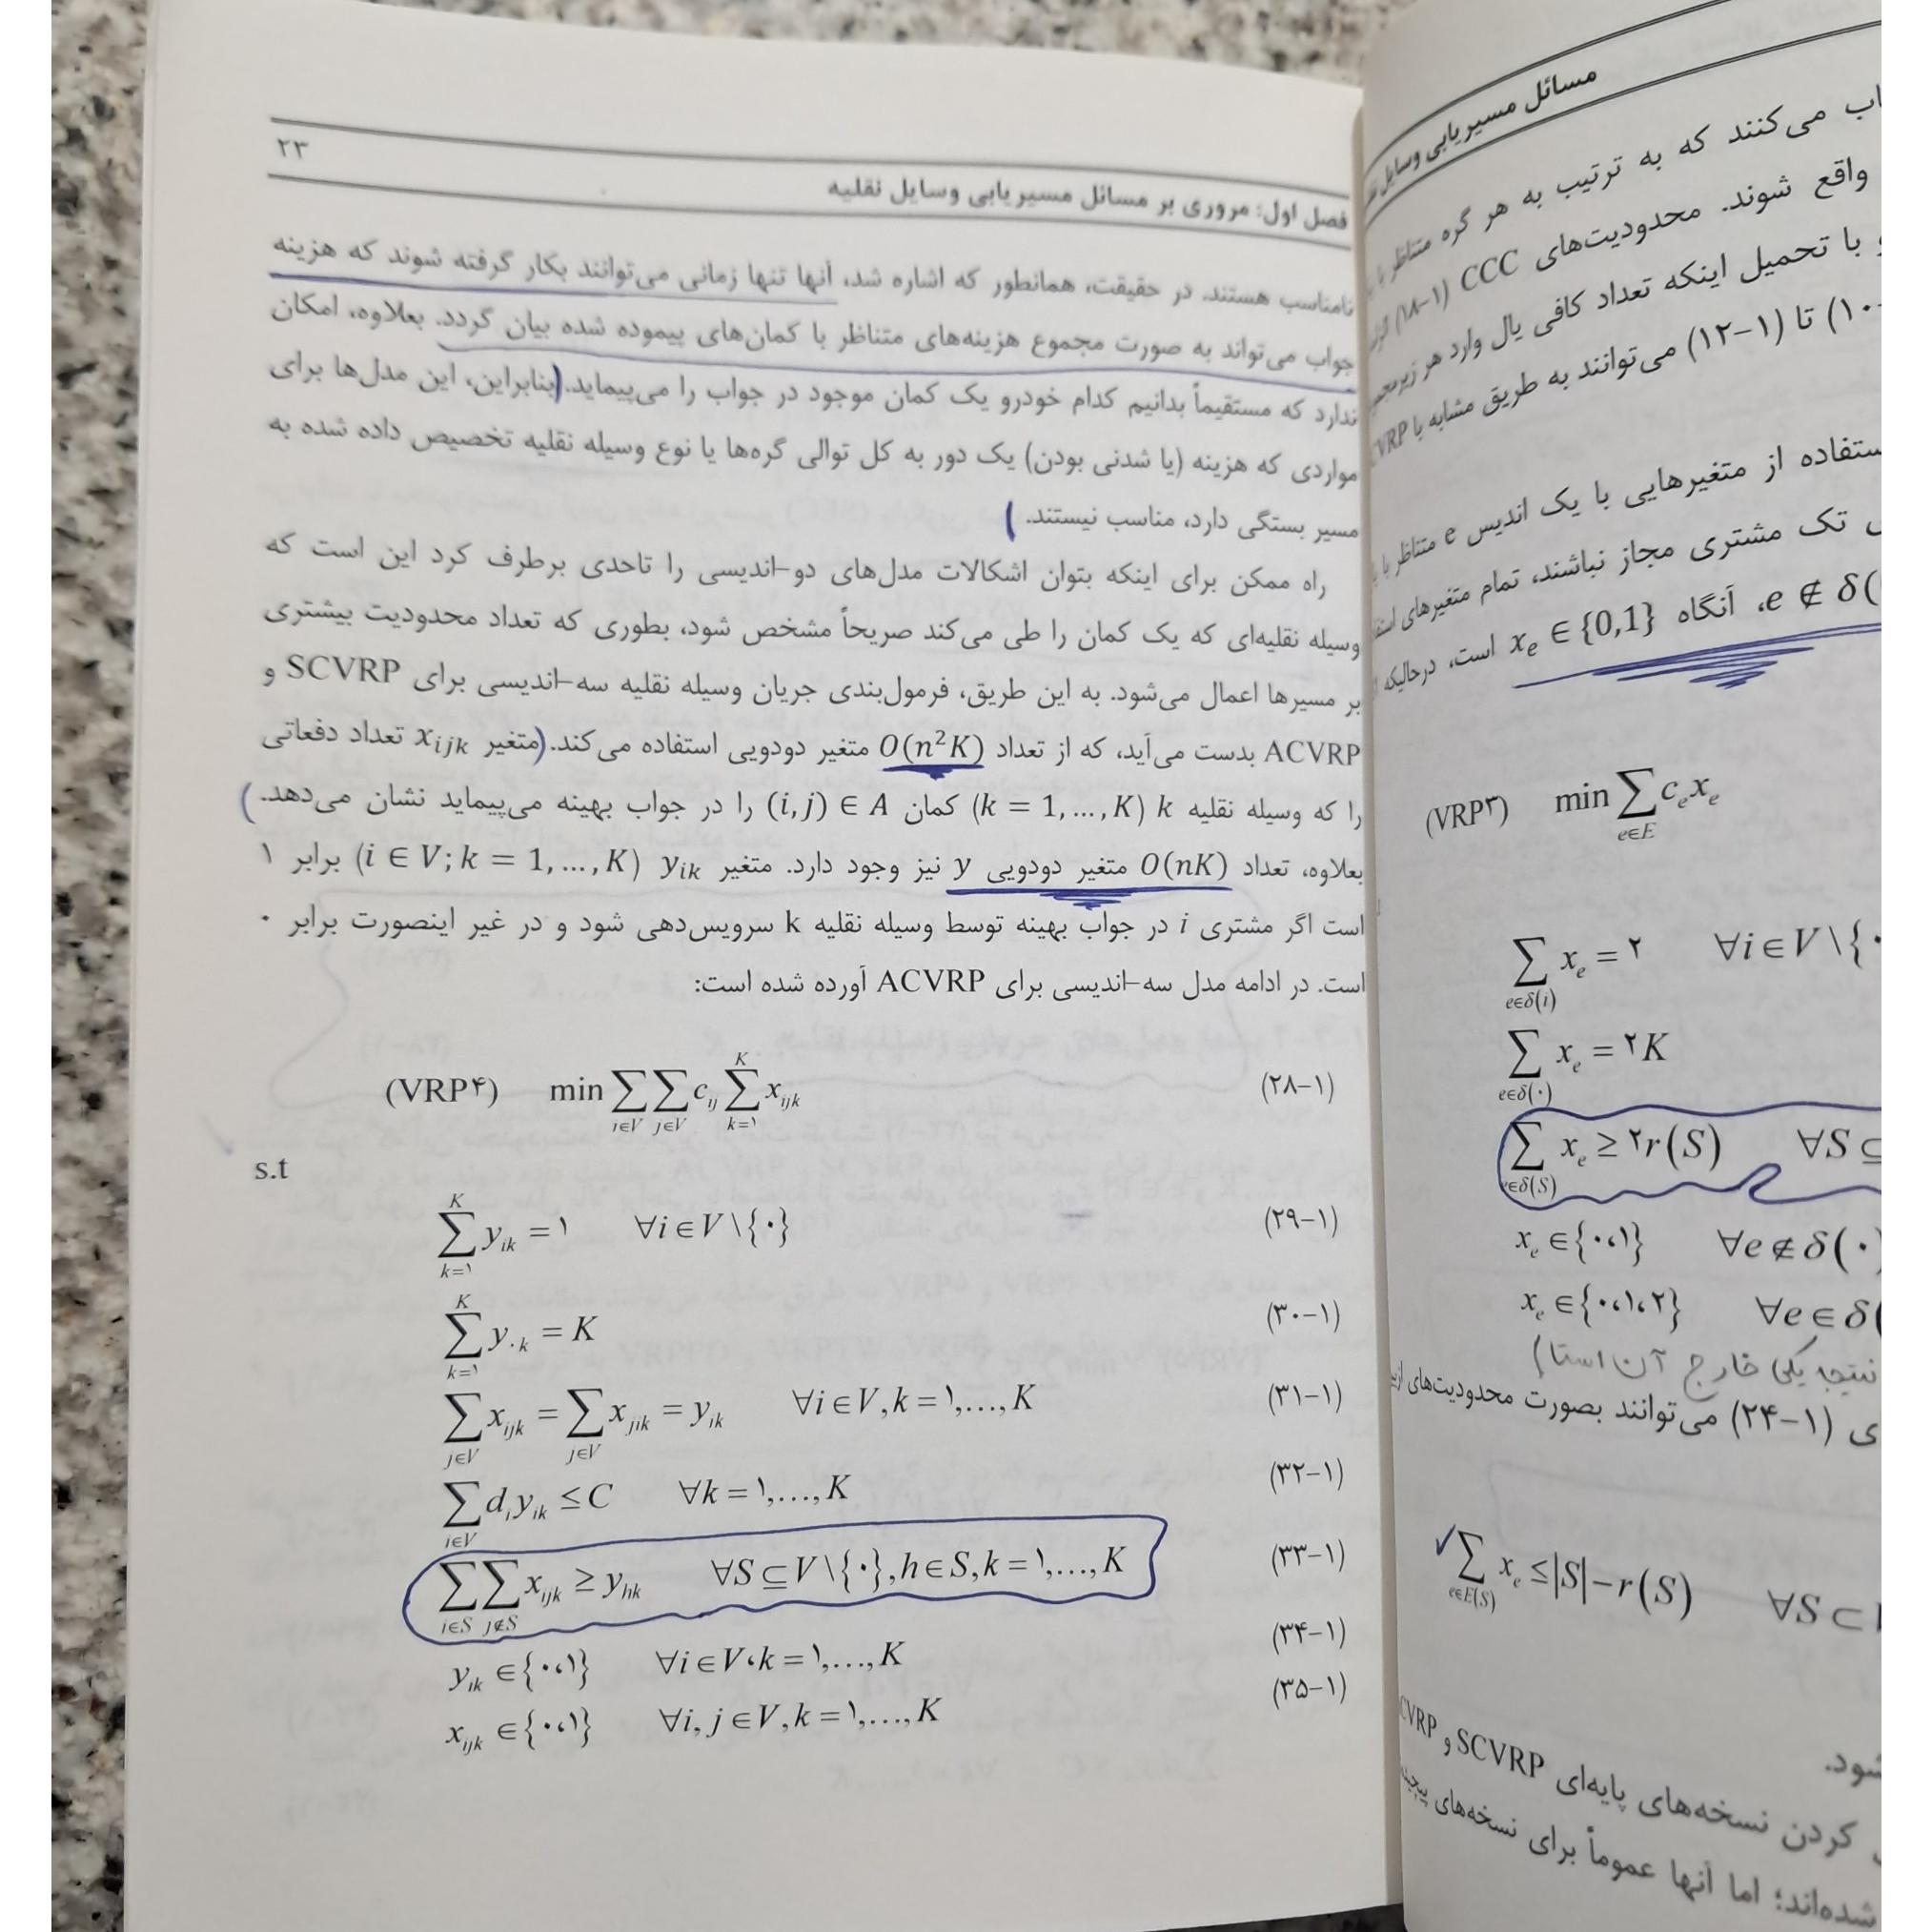 ۲۳
فصل اول: مروری بر مسائل مسیریابی وسایل نقلیه
نامناسب هستند. در حقیقت، همانطور که اشاره شد، آنها تنها زمانی می‌توانند بکار گرفته شوند که هزینه
جواب می‌تواند به صورت مجموع هزینه‌های متناظر با کمان‌های پیموده شده بیان گردد. بعلاوه، امکان
ندارد که مستقیماً بدانیم کدام خودرو یک کمان موجود در جواب را می‌پیماید. (بنابراین، این مدل‌ها برای
مواردی که هزینه (یا شدنی بودن) یک دور به کل توالی گره‌ها یا نوع وسیله نقلیه تخصیص داده شده به
مسیر بستگی دارد، مناسب نیستند. )
راه ممکن برای اینکه بتوان اشکالات مدل‌های دو-اندیسی را تاحدی برطرف کرد این است که
وسیله نقلیه‌ای که یک کمان را طی می‌کند صریحاً مشخص شود، بطوری که تعداد محدودیت بیشتری
بر مسیرها اعمال می‌شود. به این طریق، فرمول‌بندی جریان وسیله نقلیه سه-اندیسی برای SCVRP و
ACVRP بدست می‌آید، که از تعداد O(n²K) متغیر دودویی استفاده می‌کند. (متغیر x_{ijk} تعداد دفعاتی
را که وسیله نقلیه k (k = 1, ..., K) کمان (i, j) ∈ A را در جواب بهینه می‌پیماید نشان می‌دهد. )
بعلاوه، تعداد O(nK) متغیر دودویی y نیز وجود دارد. متغیر y_{ik} (i ∈ V; k = 1, ..., K) برابر ۱
است اگر مشتری i در جواب بهینه توسط وسیله نقلیه k سرویس‌دهی شود و در غیر اینصورت برابر ۰
است. در ادامه مدل سه-اندیسی برای ACVRP آورده شده است:
(VRP۴) min ∑_{i∈V} ∑_{j∈V} c_{ij} ∑_{k=۱}^{K} x_{ijk} (۲۸-۱)
s.t
∑_{k=۱}^{K} y_{ik} = ۱ ∀i ∈ V \ {۰} (۲۹-۱)
∑_{k=۱}^{K} y_{۰k} = K (۳۰-۱)
∑_{j∈V} x_{ijk} = ∑_{j∈V} x_{jik} = y_{ik} ∀i ∈ V, k = ۱, ..., K (۳۱-۱)
∑_{i∈V} d_i y_{ik} ≤ C ∀k = ۱, ..., K (۳۲-۱)
∑_{i∈S} ∑_{j∉S} x_{ijk} ≥ y_{hk} ∀S ⊆ V \ {۰}, h ∈ S, k = ۱, ..., K (۳۳-۱)
y_{ik} ∈ {۰،۱} ∀i ∈ V، k = ۱, ..., K (۳۴-۱)
x_{ijk} ∈ {۰،۱} ∀i, j ∈ V, k = ۱, ..., K (۳۵-۱)
مسائل مسیریابی وسایل
می‌کنند که به ترتیب به هر گره متناظر با
واقع شوند. محدودیت‌های CCC (۱-۱۸)
با تحمیل اینکه تعداد کافی یال وارد هر
۱۰) تا (۱-۱۲) می‌توانند به طریق مشابه با
استفاده از متغیرهایی با یک اندیس e متناظر با
تک مشتری مجاز نباشند، تمام متغیرهای
e ∉ δ(، آنگاه x_e ∈ {0,1} است، درحالیکه
(VRP۳) min ∑_{e∈E} c_e x_e
∑_{e∈δ(i)} x_e = ۲ ∀i ∈ V \ {۰
∑_{e∈δ(۰)} x_e = ۲K
∑_{e∈δ(S)} x_e ≥ ۲r(S) ∀S ⊆
x_e ∈ {۰،۱} ∀e ∉ δ(۰)
x_e ∈ {۰،۱،۲} ∀e ∈ δ(
نتیجه یکی خارج آن است)
ی (۱-۲۴) می‌توانند بصورت محدودیت‌های
∑_{e∈E(S)} x_e ≤ |S| − r(S) ∀S ⊂
شود.
کردن نسخه‌های پایه‌ای SCVRP و CVRP
شده‌اند؛ اما آنها عموماً برای نسخه‌های